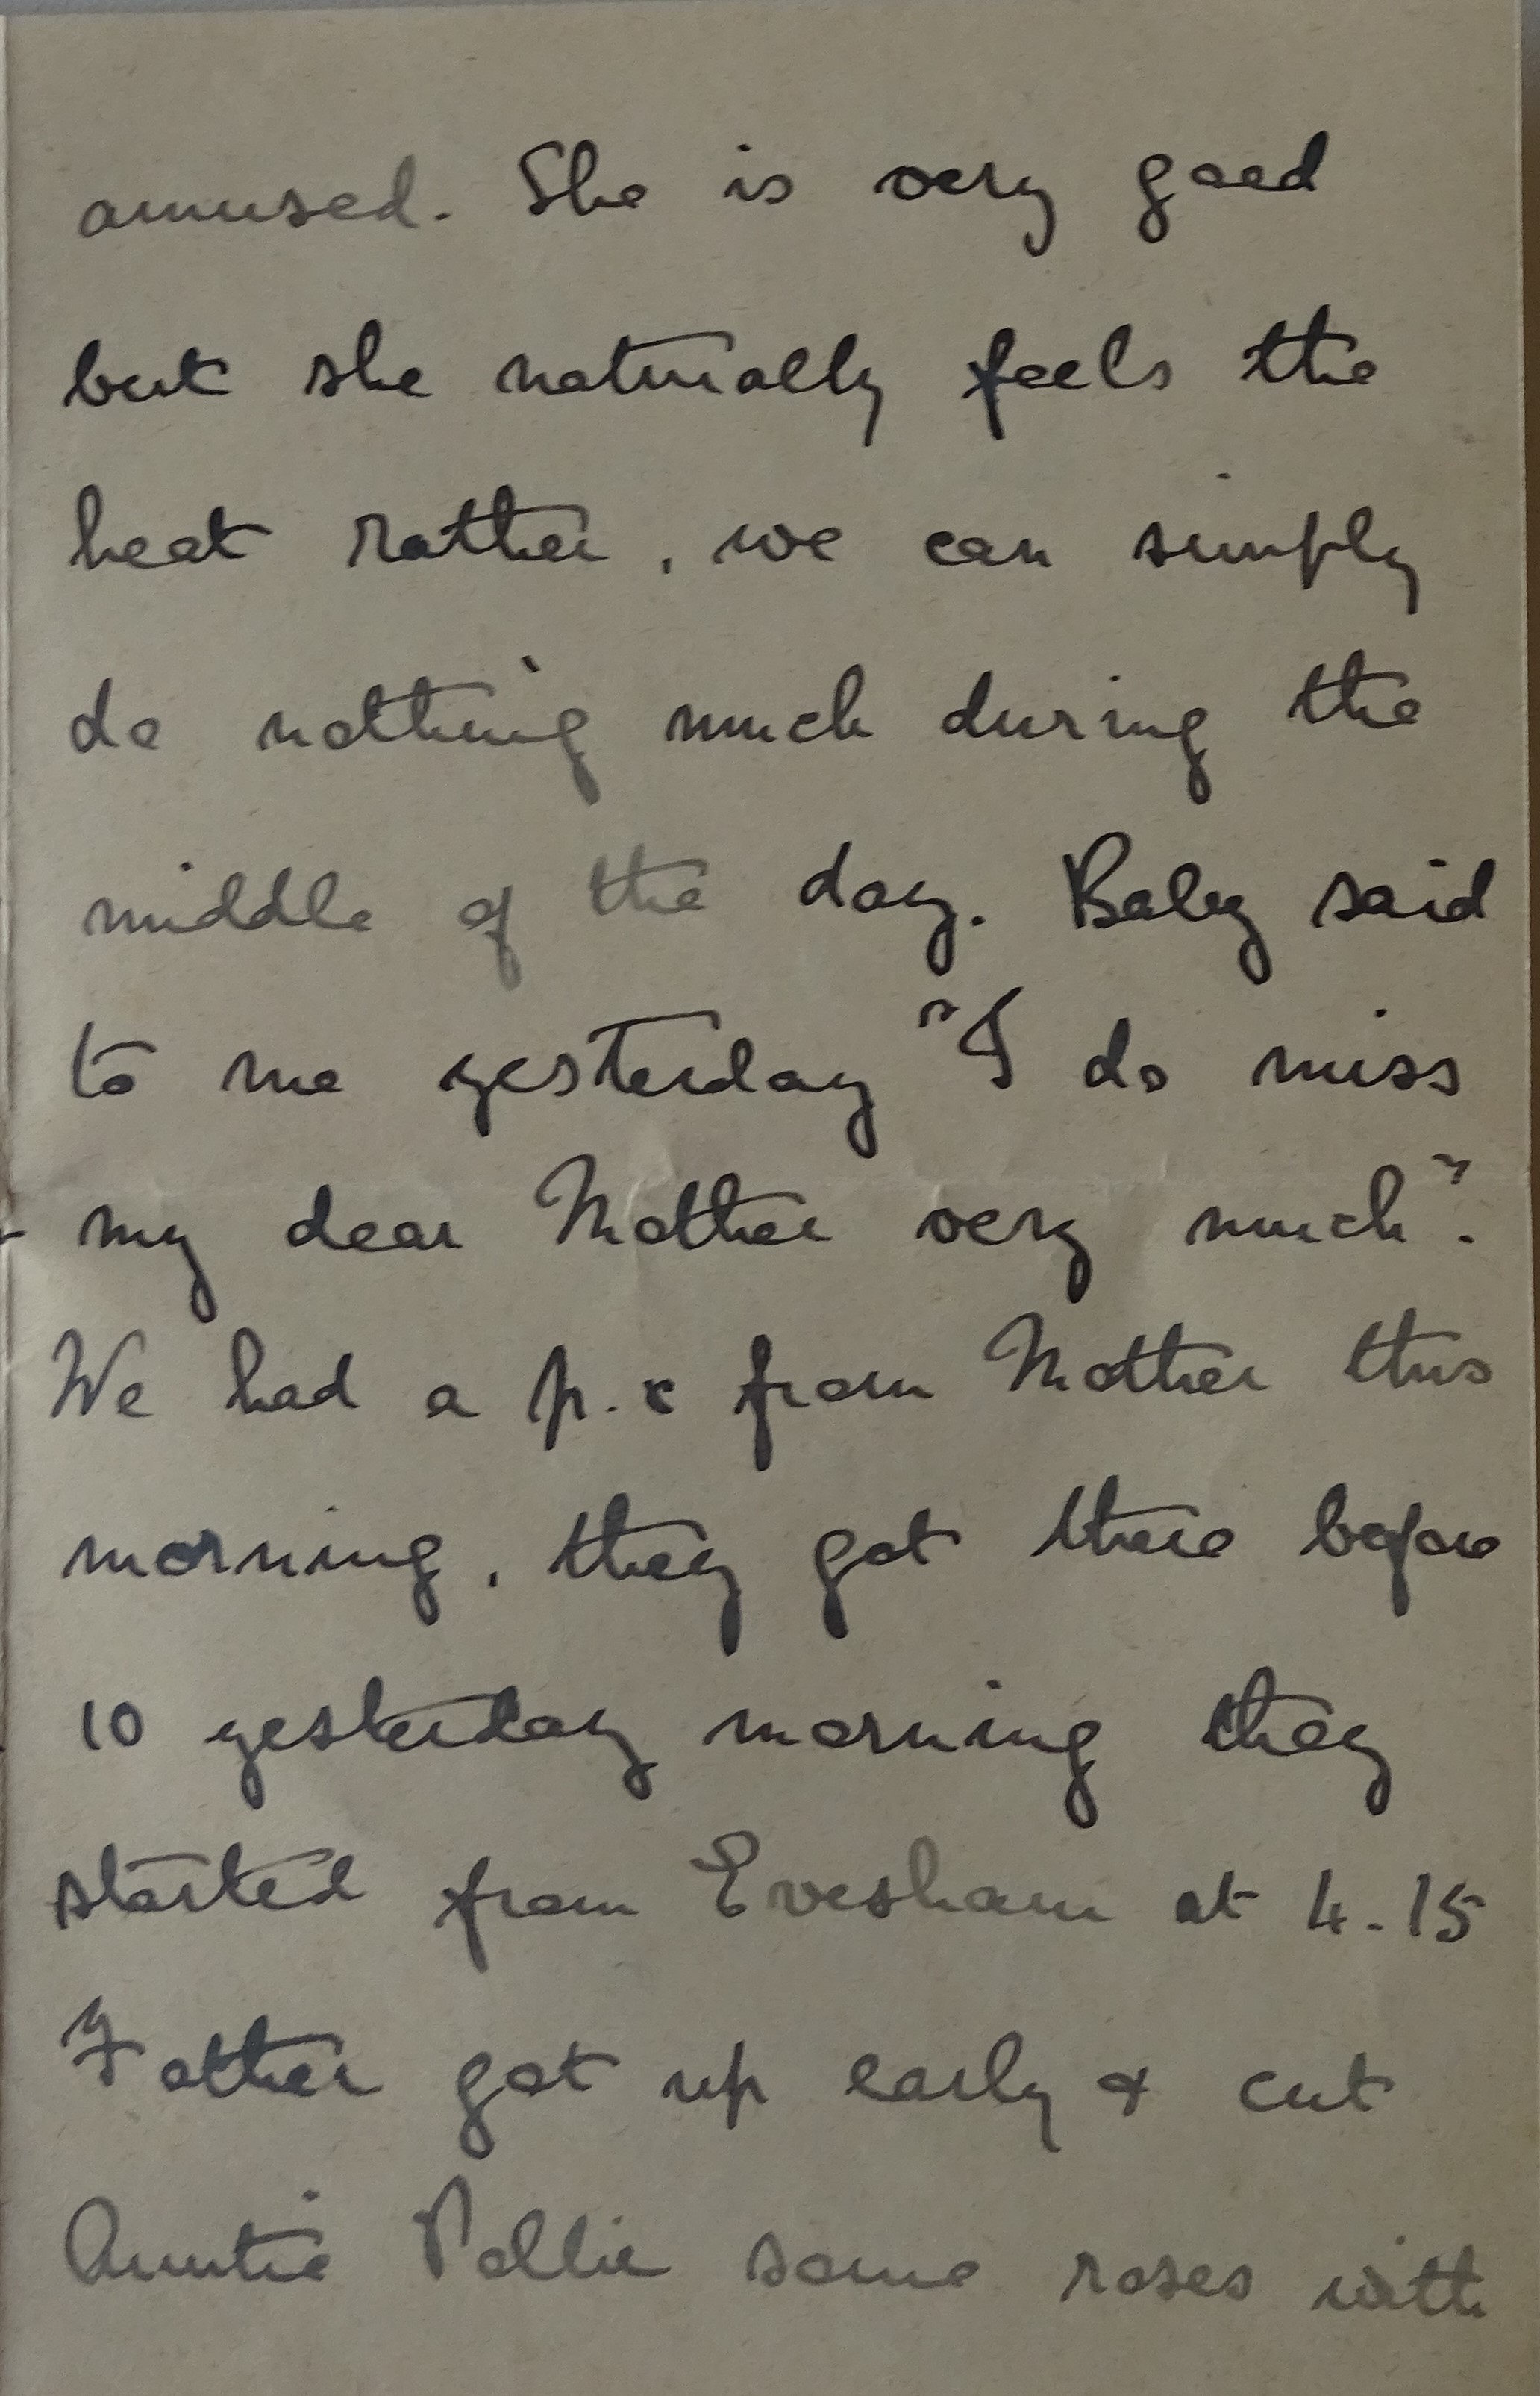 amused. She is very good
but she naturally feels the
heat rather, we can simply
do nothing much during the
middle of the day. Baby said
to me yesterday "I do miss
my dear Mother very much".
We had a p.c from Mother this
morning, they got there before
10 yesterday morning they
started from Evesham at 4.15
Father got up early & cut
Auntie Pollie some roses with